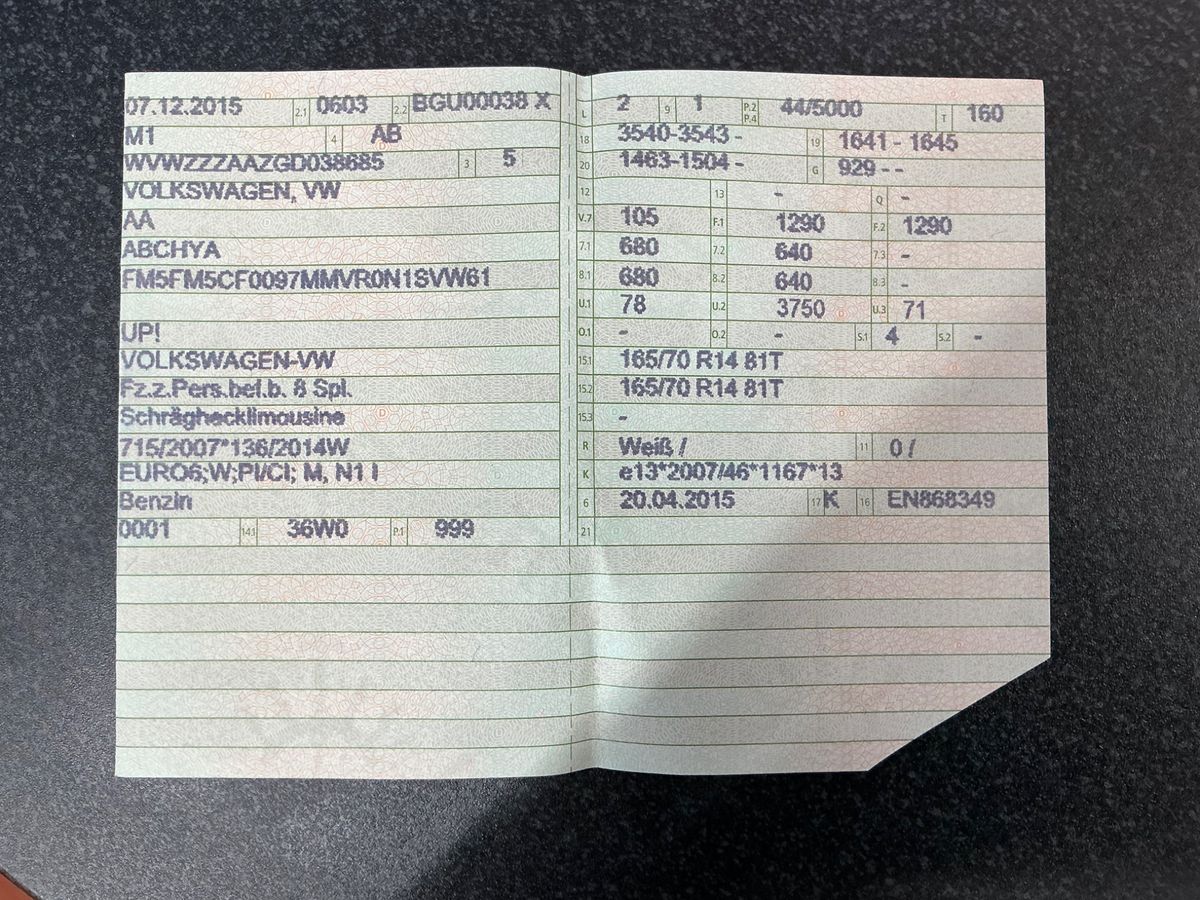 07.12.2015 2.1 0603 2.2 BGU00038 X
M1 4 AB
WVWZZZAAZGD038685 3 5
VOLKSWAGEN, VW
AA
ABCHYA
FM5FM5CF0097MMVR0N1SVW61
UP!
VOLKSWAGEN-VW
Fz.z.Pers.bef.b. 8 Spl.
Schräghecklimousine
715/2007*136/2014W
EURO6;W;PI/CI; M, N1 I
Benzin
0001 14.1 36W0 P.1 999
L 2 9 1 P.2 P.4 44/5000 T 160
18 3540-3543 - 19 1641 - 1645
20 1463-1504 - G 929 - -
12 13 - Q -
V.7 105 F.1 1290 F.2 1290
7.1 680 7.2 640 7.3 -
8.1 680 8.2 640 8.3 -
U.1 78 U.2 3750 U.3 71
O.1 - O.2 - S.1 4 S.2 -
15.1 165/70 R14 81T
15.2 165/70 R14 81T
15.3 -
R Weiß / 11 0 /
K e13*2007/46*1167*13
6 20.04.2015 17 K 16 EN868349
21